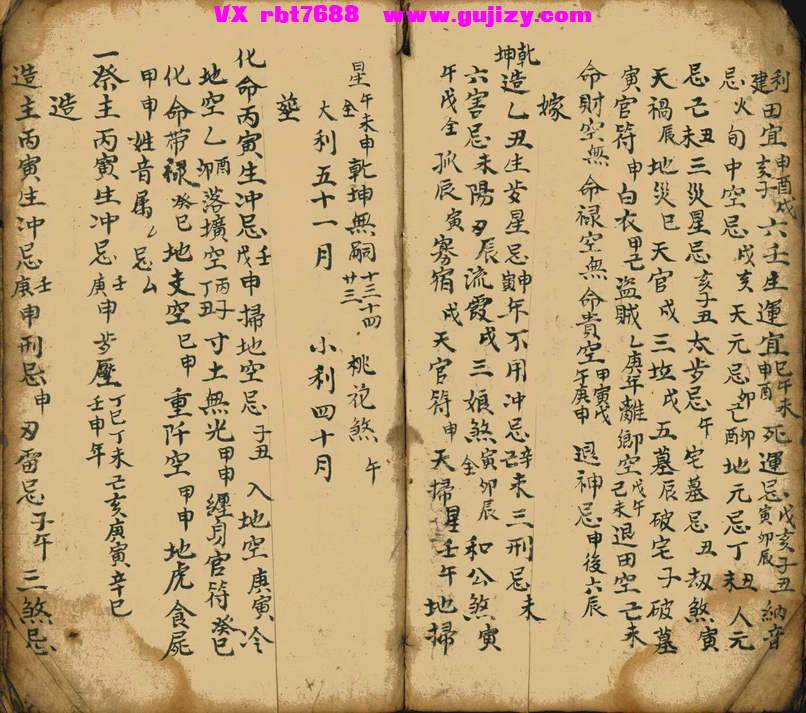 VX rbt7688 www.gujizy.com
利建田宜申酉戌亥子六壬生運宜巳午未申酉死運忌戌亥子丑寅卯辰納音
忌火旬中空忌戌亥天元忌卯己酉卯地元忌丁丑未人元
忌己丑未三災星忌亥子丑太歩忌午宅墓忌丑劫煞寅
天禍辰地災巳天官戌三坵戌五墓辰破宅子破墓
寅官符申白衣甲己盜賊乙庚年離鄉空戊午己未退田空己未
命財空無命禄空無命貴空甲寅戊午庚申退神忌申後六辰
嫁
乾坤造乙丑生歩星忌申寅年不用沖忌辛未三刑忌未
六害忌未陽刃辰流霞戌三娘煞寅卯辰全和公煞寅
午戌全孤辰寅寡宿戌天官符申天掃星壬午地掃
星午未申全乾坤無嗣十三十四廿三桃花煞午
大利五十一月 小利四十月
塟
化命丙寅生沖忌壬戊申掃地空忌子丑入地空庚寅冷
地空乙酉卯落壙空丙子丁丑寸土無光甲申纏身官符癸巳
化命帶禄癸巳地支空巳申重阡空甲申地虎食屍
甲申姓音属忌
一祭主丙寅生沖忌壬庚申歩壓丁巳丁未己亥庚寅辛巳壬申年
造
造主丙寅生沖忌壬庚申刑忌申刃雷忌子午三煞忌